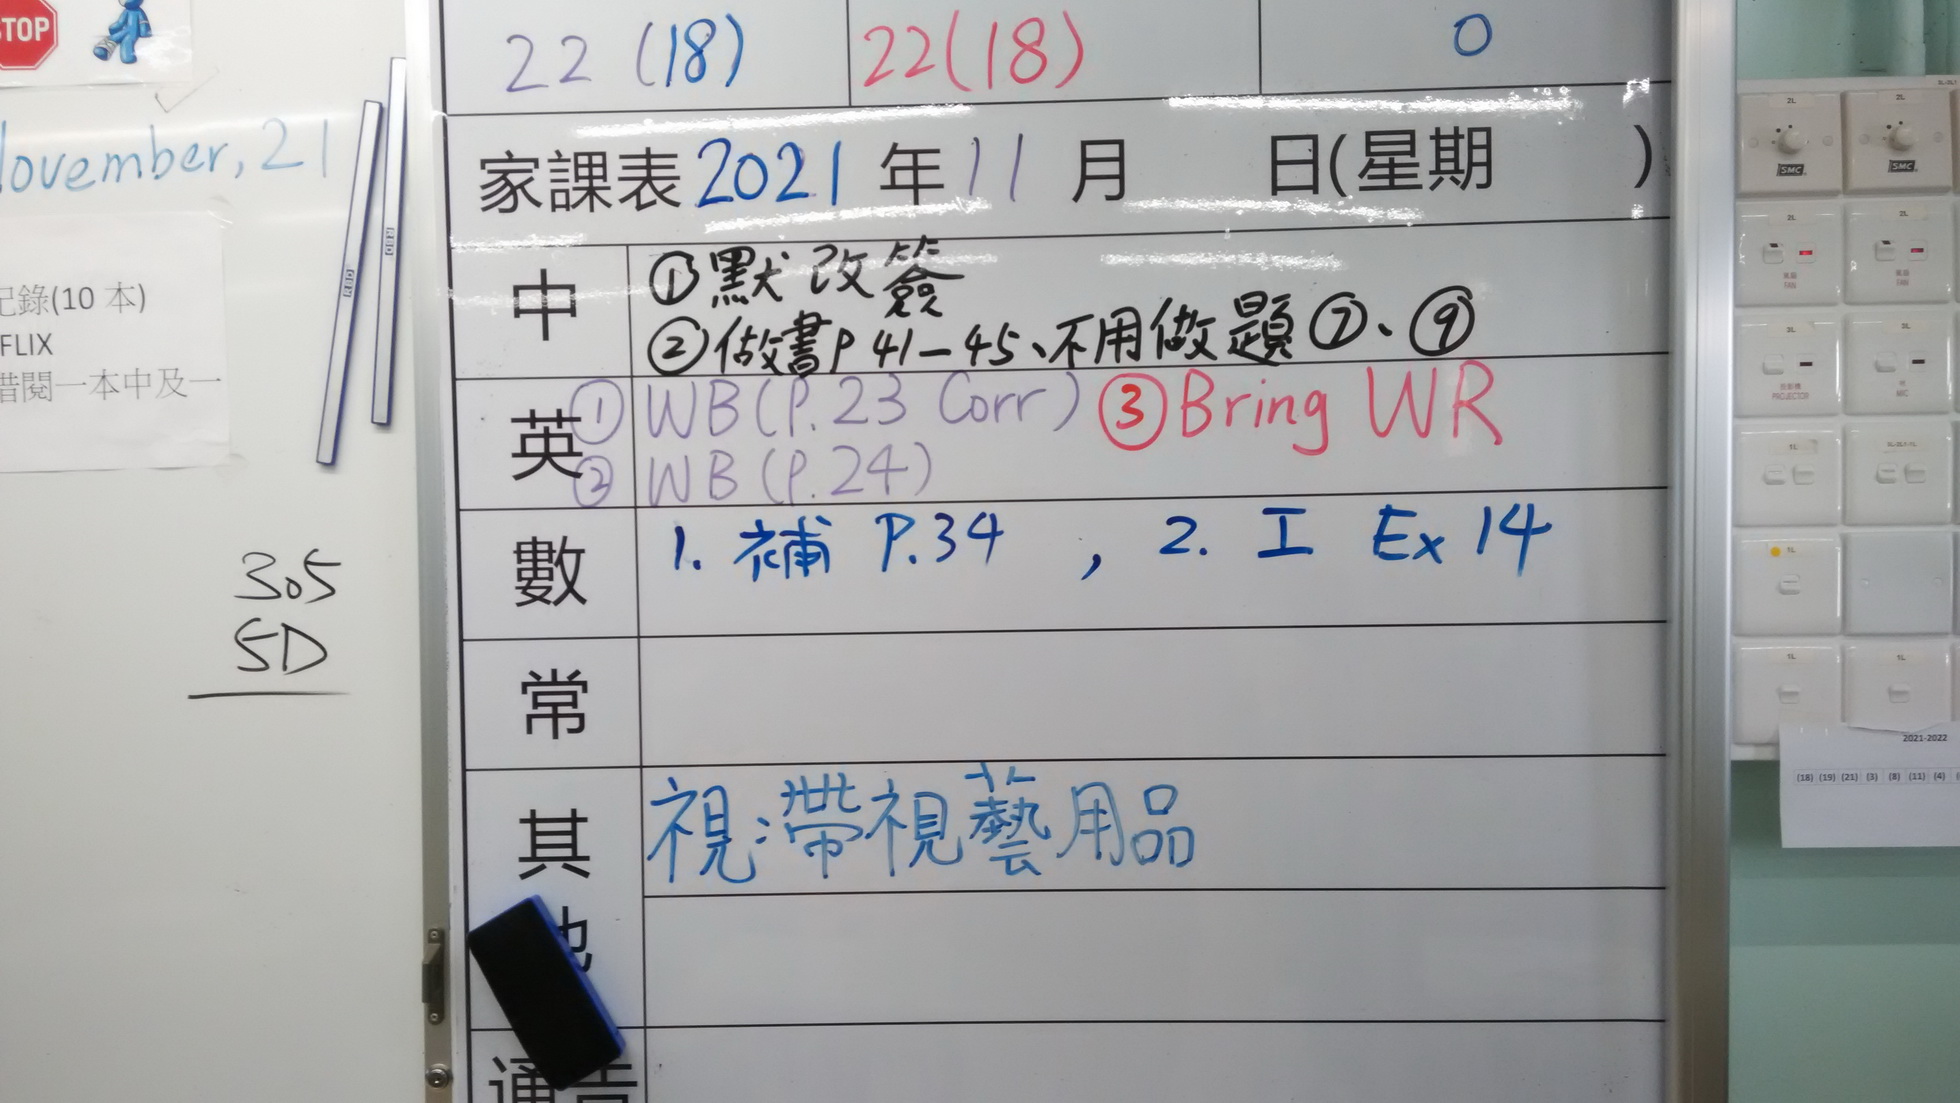 TOP
22 (18) 22(18) 0
ovember, 21
家課表 2021 年 11 月 日(星期 )
記錄(10 本)
FLIX
借閱一本中及一
中 ①默改簽
②做書P 41-45、不用做題⑦、⑨
英 ① WB (P.23 Corr) ③ Bring WR
② WB (P.24)
數 1. 補 P.34 , 2. 工 Ex 14
305
5D
常
其他 視:帶視藝用品
通告
2L 2L
SMC SMC
2L 2L
FAN FAN
2L 2L
PROJECTOR MIC
1L
1L
1L 1L
2021-2022
(18) (19) (21) (3) (8) (11) (4)